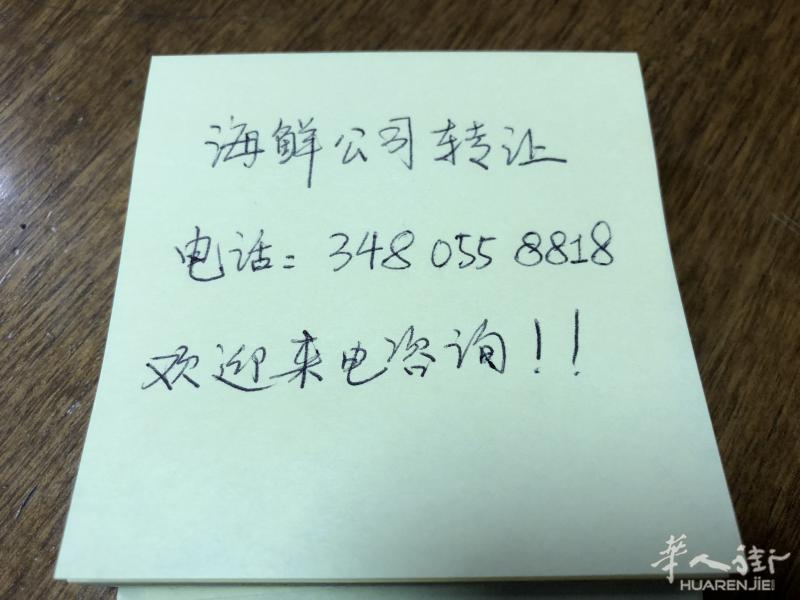 海鲜公司转让
电话: 348 055 8818
欢迎来电咨询!!
華人街
HUARENJIE